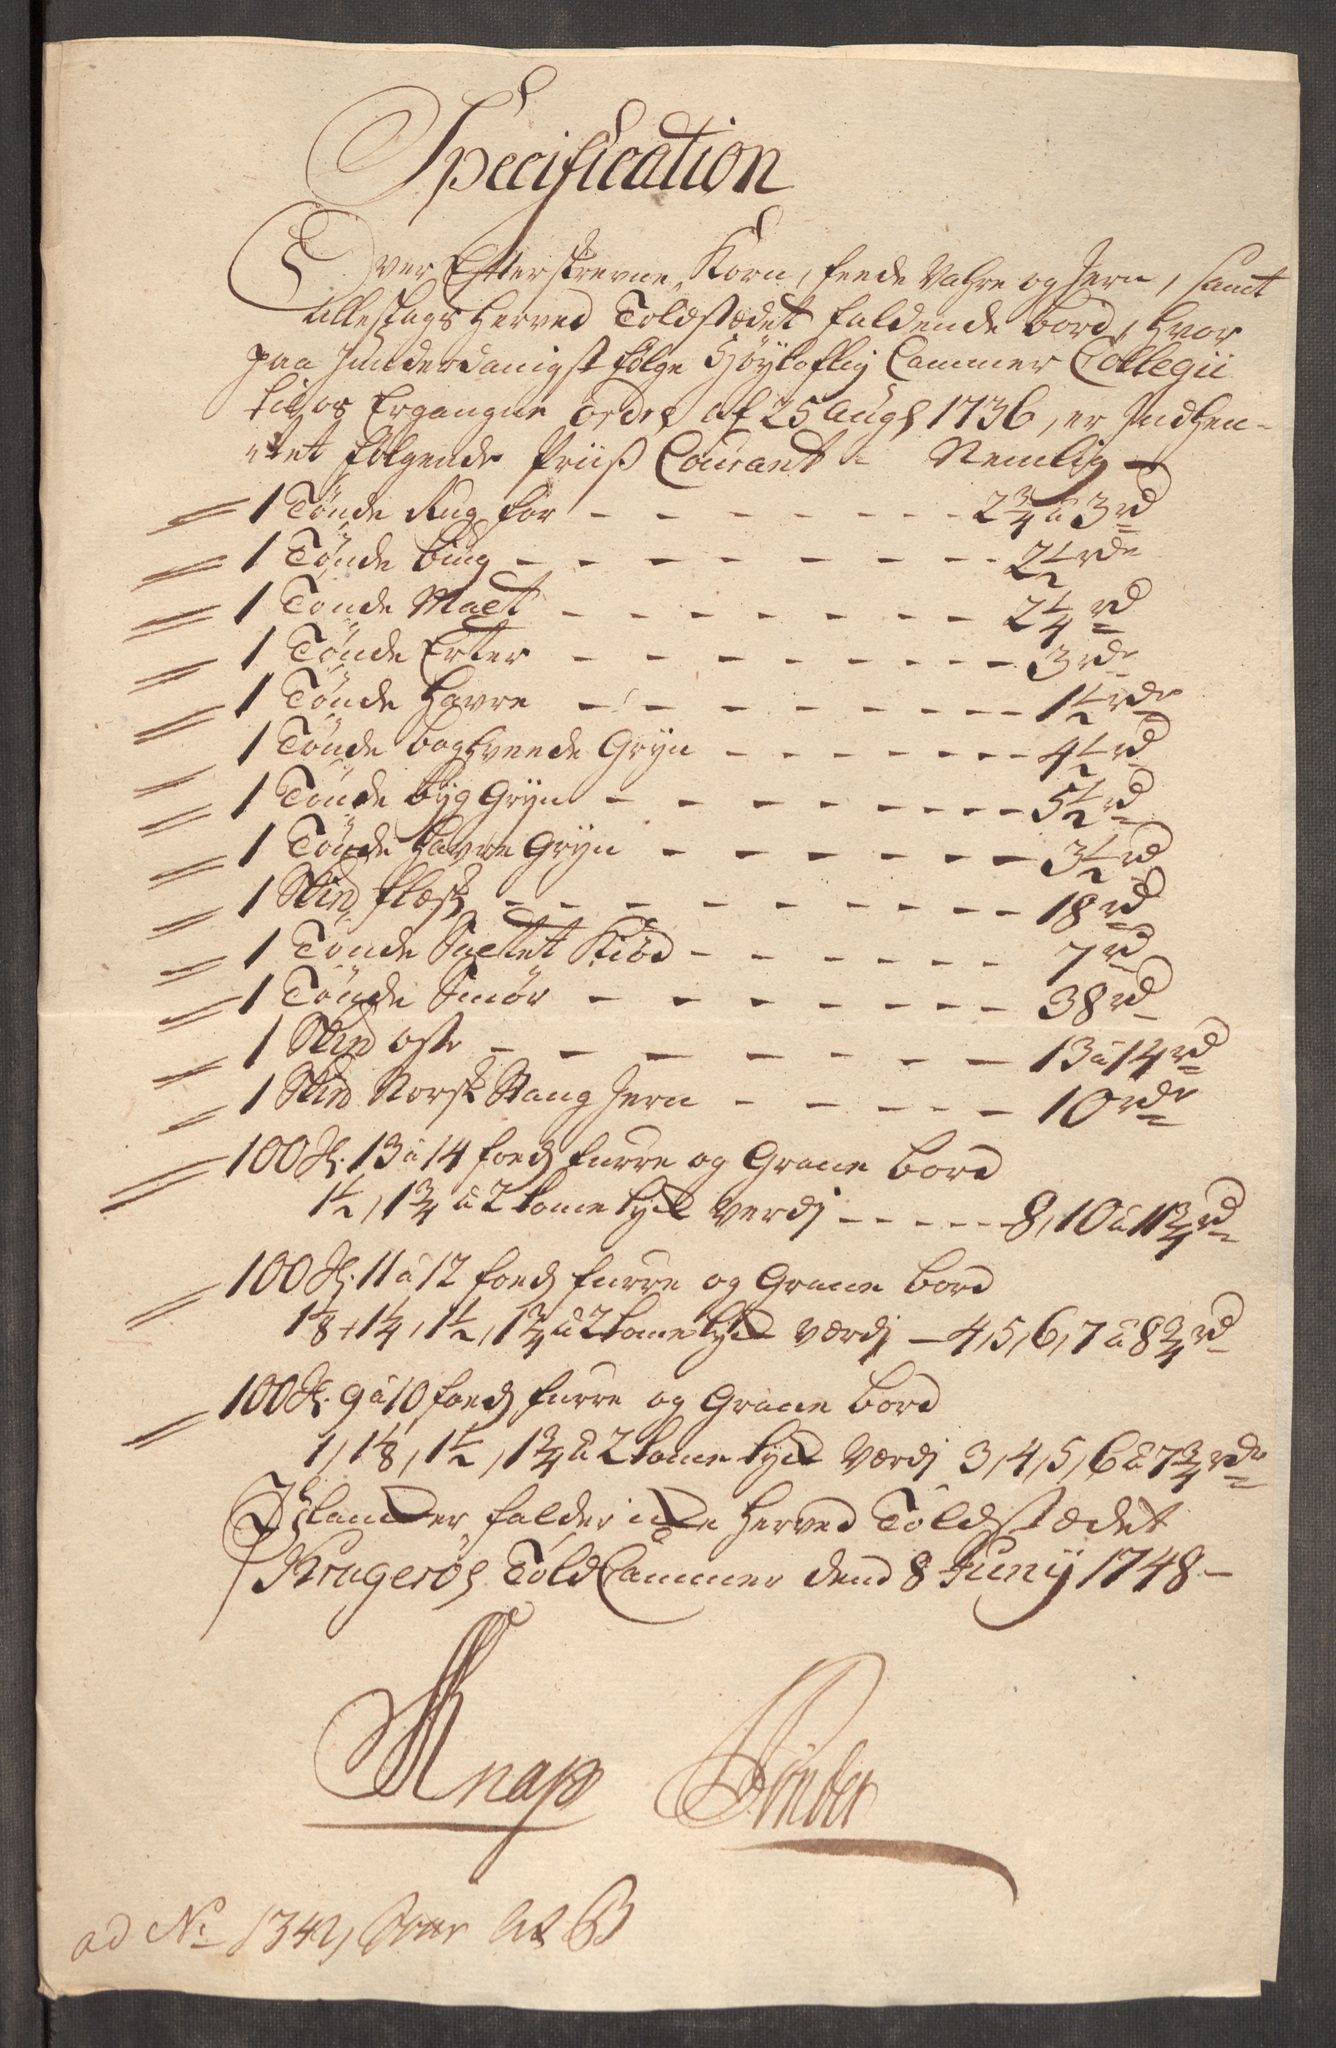 Specification
Over Efterskrevne Korn, feede Vahre og Jern, samt
alleslags Herved Toldstædet faldende bord, Hvor
paa Junderdanigst følge Høyloflig Cammer Collegii
til os Ergangne Ordre af 25 Augs 1736, er Indhen-
tet følgende Priiß Courant - Nemlig
1 Tønde Rug for - - - - - - - - 2 3/4 a 3 rd
1 Tønde biug - - - - - - - - 2 1/2 rdr
1 Tønde Malt - - - - - - - - 2 1/4 rd
1 Tønde Erter - - - - - - - - 3 rdr
1 Tønde Havre - - - - - - - - 1 1/2 rdr
1 Tønde boghveede Gryn - - - - - - 4 1/2 rd
1 Tønde byg Gryn - - - - - - - - 5 1/2 rd
1 Tønde Havre Gryn - - - - - - - 3 1/2 rd
1 Sk℔ flæsk - - - - - - - - - 18 rd
1 Tønde Saltet Kiød - - - - - - 7 rd
1 Tønde Smør - - - - - - - - 38 rd
1 Sk℔ oste - - - - - - - - 13 a 14 rd
1 Sk℔ Norsk Stang Jern - - - - - 10 rdr
100 St. 13 a 14 foeds furre og Grane bord
1 1/2, 1 3/4 a 2 tome tyck Verdj - - - - - 8, 10 a 11 3/4 rd
100 St. 11 a 12 foeds furre og Grane bord
1 1/8, 1 1/4, 1 1/2, 1 3/4 a 2 tome tyck Værdj - 4, 5, 6, 7 a 8 3/4 rd
100 St. 9 a 10 foeds furre og Grane bord
1, 1 1/8, 1 1/2, 1 3/4 a 2 tome tyck Værdj 3, 4, 5, 6 a 7 3/4 rdr
falder icke Herved Toldstædet
Kragerøes Told Cammer dend 8 Juny 1748 -
Knap
ad No 1342,